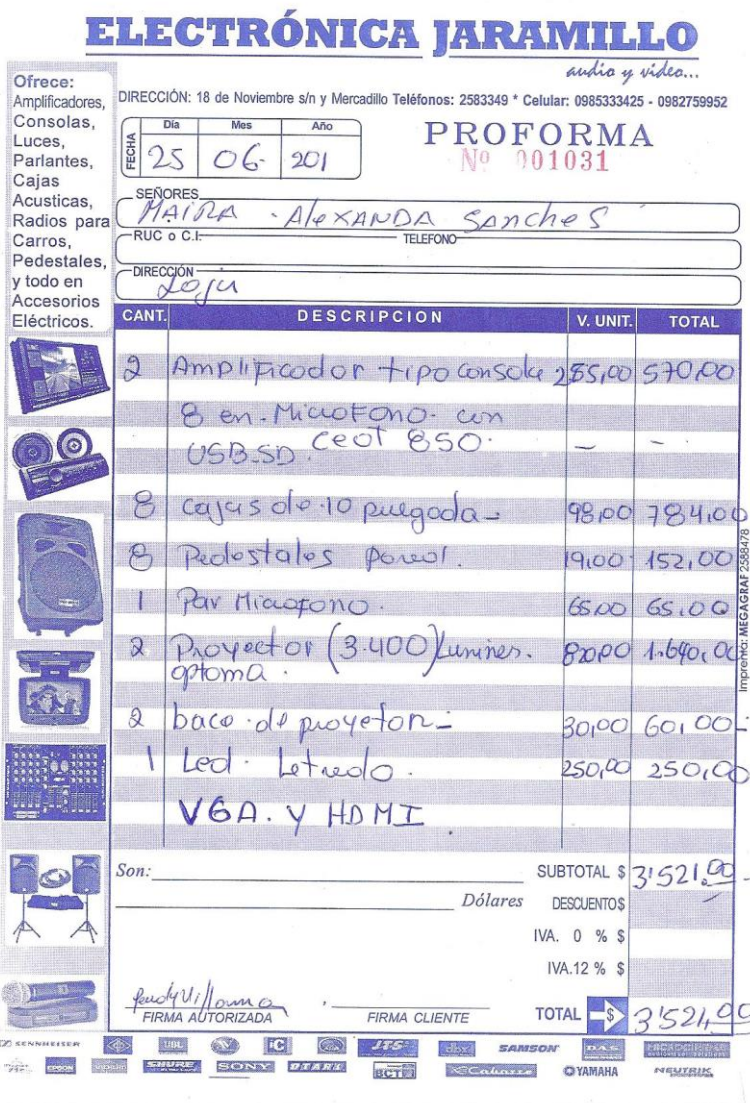 ELECTRÓNICA JARAMILLO
audio y video...
Ofrece:
Amplificadores,
Consolas,
Luces,
Parlantes,
Cajas
Acusticas,
Radios para
Carros,
Pedestales,
y todo en
Accesorios
Eléctricos.
DIRECCIÓN: 18 de Noviembre s/n y Mercadillo Teléfonos: 2583349 * Celular: 0985333425 - 0982759952
FECHA
Día Mes Año
25 06- 201
PROFORMA
Nº 001031
SEÑORES
MAIRA - AleXANDA SAncheS
RUC o C.I. TELEFONO
DIRECCIÓN
Loja
CANT. DESCRIPCION V. UNIT. TOTAL
2 Amplificador tipo consola 285,00 570,00
8 en. Micrófono. con
USB-SD. 850. — —
8 cajas de 10 pulgada- 98,00 784,00
8 Pedestales 19,00 152,00
1 Par Microfono. 65,00 65,00
2 Proyector (3.400) Lumines. 820,00 1.640,00
optoma.
2 de proyetor- 30,00 601,00-
1 Led. Letredo. 250,00 250,00
VGA. Y HDMI
Son: SUBTOTAL $ 3'521,00
Dólares DESCUENTO $ —
IVA. 0 % $
IVA.12 % $
FIRMA AUTORIZADA FIRMA CLIENTE TOTAL $ 3'521,00
Imprenta: MEGAGRAF 2588478
SENNHEISER UBL iC JTS dby SAMSON D.A.S.
EPSON SHURE SONY BCT Cabasse YAMAHA NEUTRIK